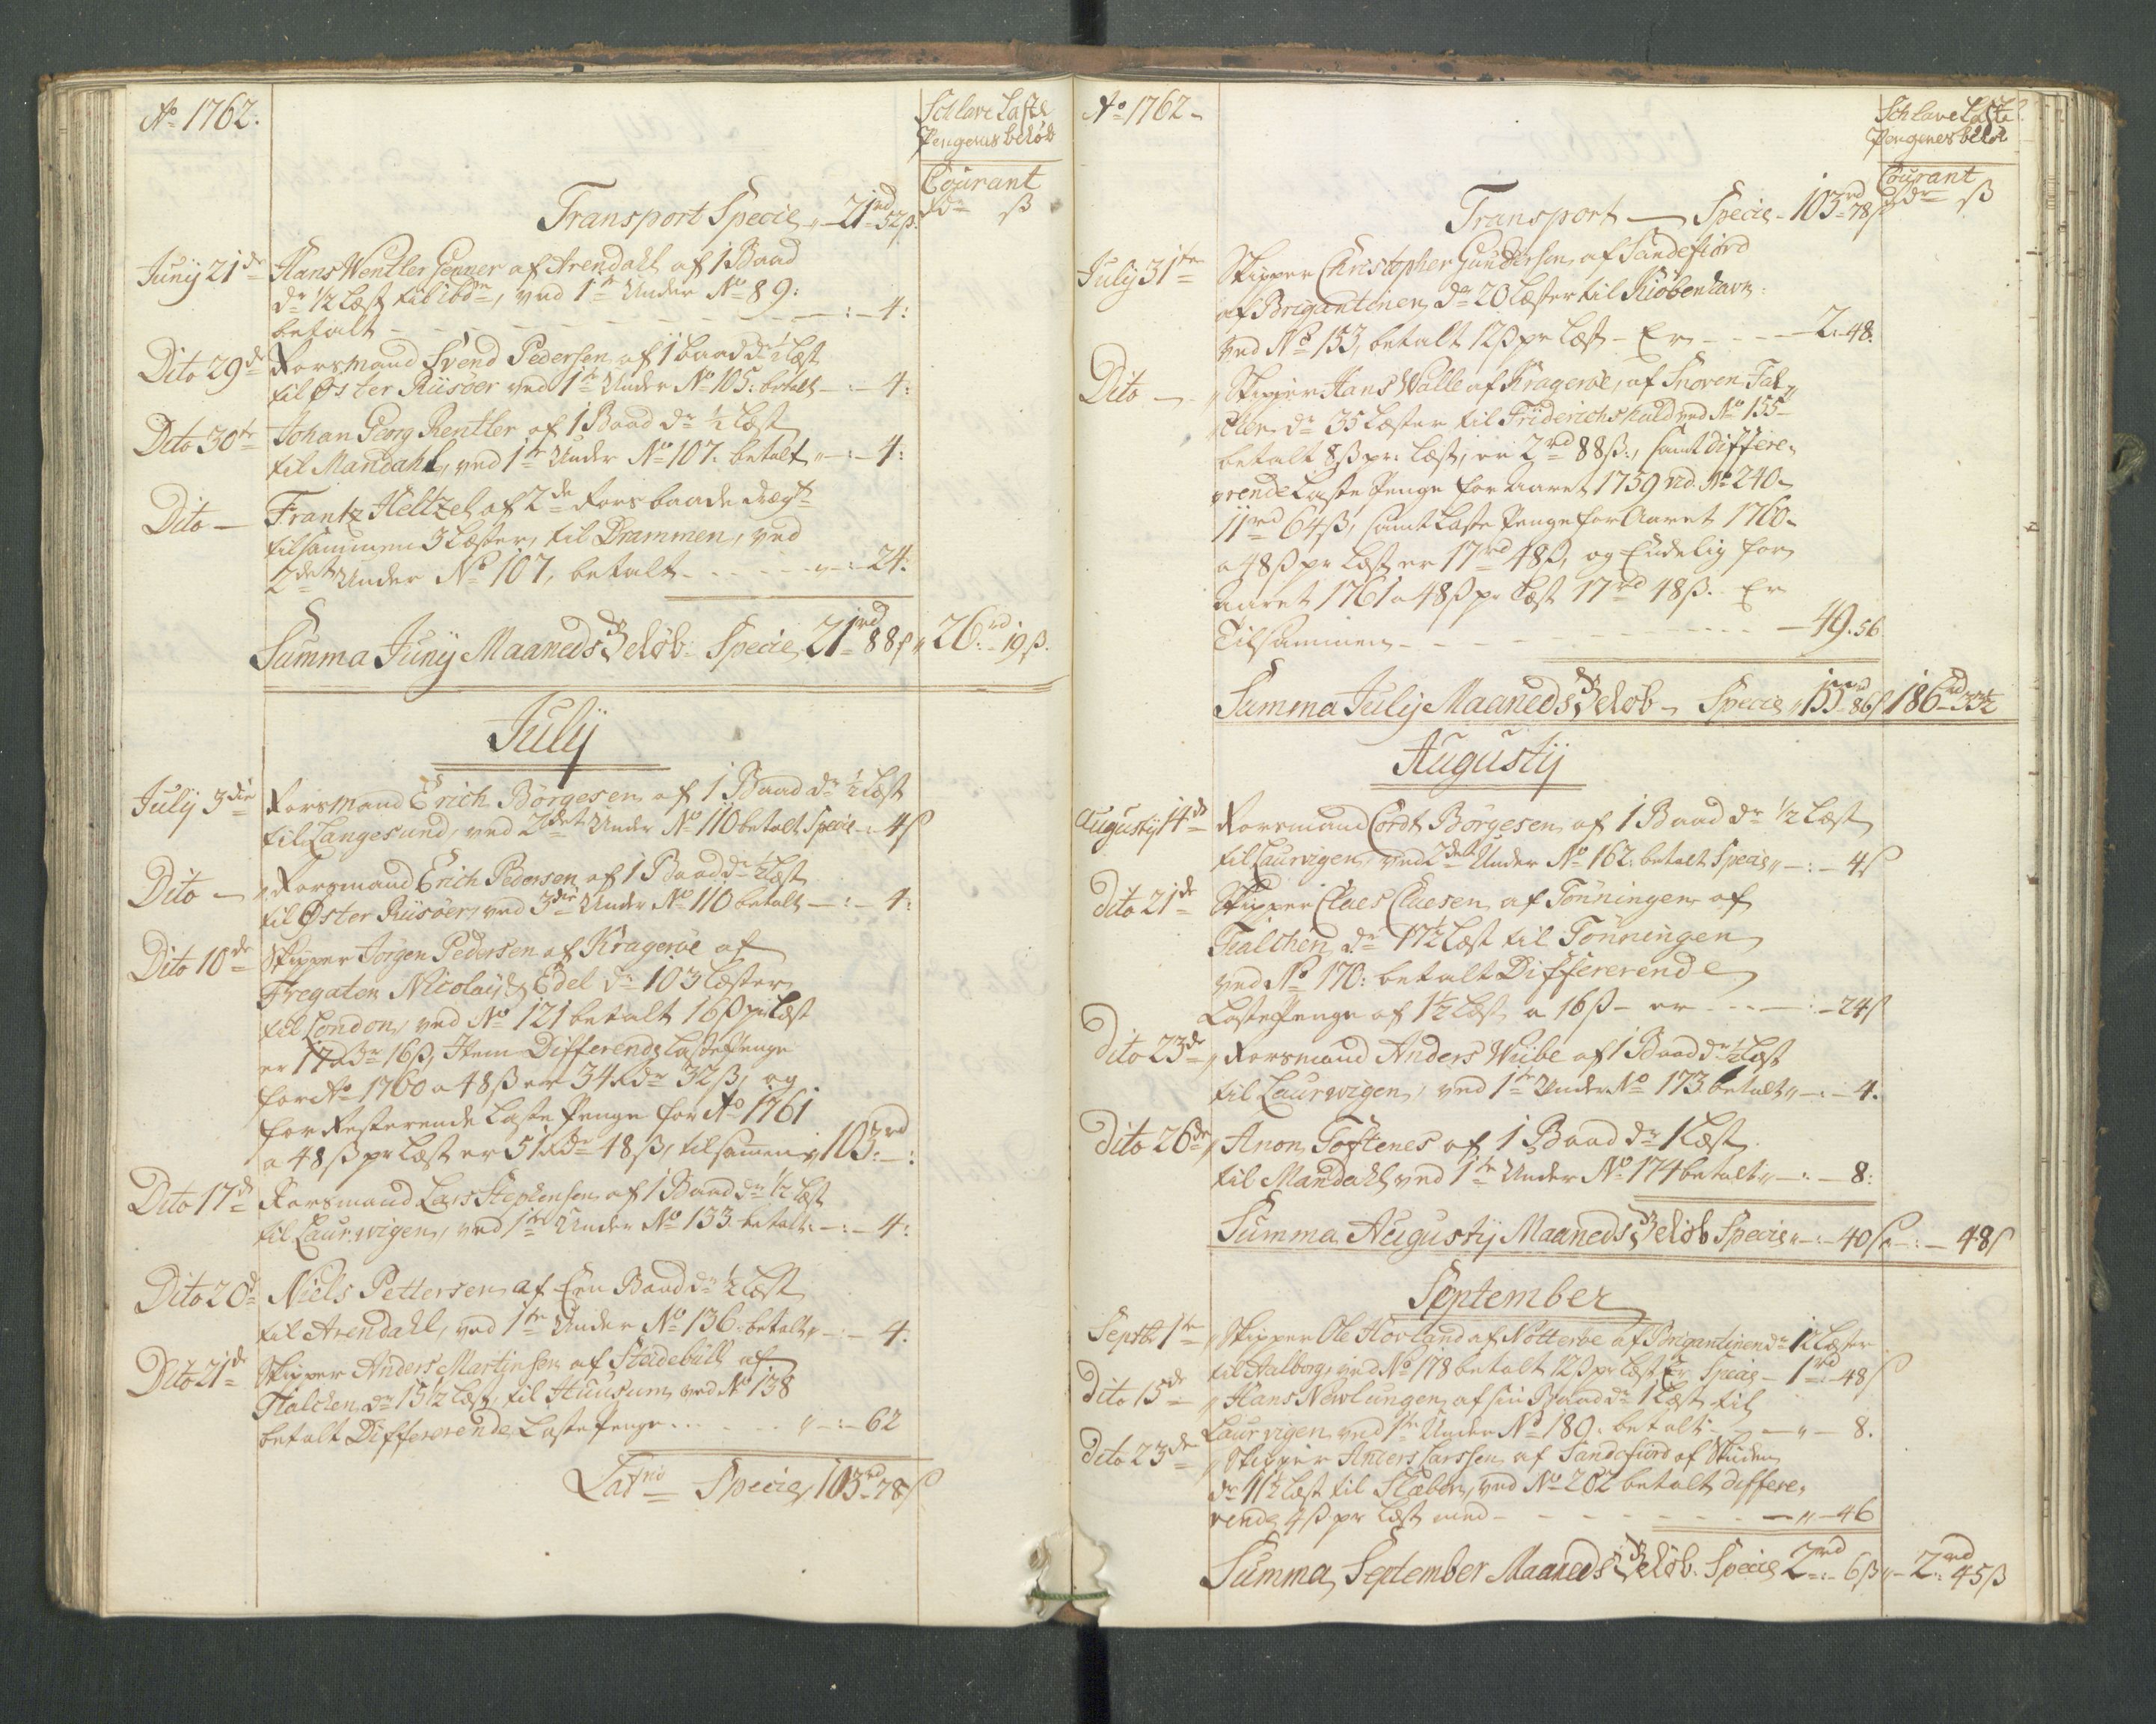 Aº 1762.
Schlave Laste
Pengenes beløb
Courant
Rdr ß
Transport Specie „ 21rd 52ß.
Junij 21de Hans Wentler Genner af Arendahl af 1 Baad
dr ½ Læst til ibdm, ved 1te Under No 89:
betalt - - - - - : - 4:
Dito 29de Forsmand Svend Pedersen af 1 baad dr ½ Læst
til Øster Riisøer ved 1te Under No 105: betalt - : - 4:
Dito 30te Johan Georg Rentler af 1 Baad dr ½ Læst
til Mandahl, ved 1te Under No 107. betalt „ - : - 4:
Dito - Frantz Heltzel af 2de Fors baade drægt
tilsammen 3 Læster, til Drammen, ved
2det Under No 107, betalt - - - - „ - : - 24:
Summa Junij Maaneds Beløb. Specie 21rd 88ß „ 26rd 19ß.
Julij
Julij 3die Forsmand Erich Börgesen af 1 Baad dr ½ Læst
til Langesund, ved 2det Under No 110 betalt Specie - : 4ß
Dito - „ Forsmand Erich Pedersen af 1 Baad dr ½ Læst
til Øster Riisöer, ved 3die Under No 110 betalt - : - 4:
Dito 10de Skipper Jörgen Pedersen af Krageröe af
Fregaten Nicolai & Edel dr 103 Læster
til London, ved No 121 betalt 16ß pr Læst
er 17 Rdr 16ß, Item Differends Laste Penge
for Aº 1760 a 48ß er 34 Rdr 32ß, og
for Resterende Laste Penge for Aº 1761
a 48ß pr Læst er 51 Rdr 48ß, tilsamen „ 103rd - :
Dito 17de Forsmand Lars Stephensen af 1 Baad dr ½ Læst
til Laurwigen, ved 1te Under No 133 betalt - : - 4:
Dito 20de Niels Pettersen af Een Baad dr ½ Læst
til Arendahl, ved 1te Under No 136. betalt „ - : - 4.
Dito 21de Skipper Anders Martinsen af Stadebüll af
Tialchen dr 15½ Læst, til Huusum ved No 138
betalt Differerende Laste Penge - - - „ - : - 62
Latus Specie, 103rd 78ß
Aº 1762.
Schlave Laste
Pengenes beløb
Courant
Rdr ß
Transport - Specie - 103rd 78ß
Julij 31te Skipper Christopher Gundersen af Sandefiord
af Brigantinen dr 20 Læster til Kiöbenhavn
ved No 153, betalt 12ß pr Læst - Er - - - 2.. 48.
Dito - „ Skipper Hans Walle af Krageröe, af Snoven Fal„
„ dr 35 Læster til Friderichshald ved No 155
betalt 8ß pr: Læst, er 2rd 88ß, samt Differe„
rende Laste Penge for Aaret 1759 ved No 240
11rd 64ß, samt Laste Penge for Aaret 1760
a 48ß pr Læst er 17rd 48ß, og Endelig for
Aaret 1761 a 48ß pr Læst 17rd 48ß. Er
Tilsammen - - - - - - 49. 56
Summa Julij Maaneds Beløb - Specie „ 155rd 86ß 186rd 33½
Augustij
Augustij 14de Forsmand Cordt Börgesen af 1 Baad dr ½ Læst
til Laurvigen, ved 2det Under No 162. betalt Specie „ - : - 4ß
Dito 21de Skipper Claes Claesen af Tönningen af
Tialchen dr 17½ Læst til Tönningen
ved No 170: betalt Differerende
Laste Penge af 1½ Læst a 16ß - er - - - : - 24ß
Dito 23de „ Forsmand Anders Wiibe af 1 Baad dr ½ Læst
til Laurwigen, ved 1te Under No 173 betalt „ - : - 4.
Dito 26de „ Anon Toftenes af 1 Baad dr 1 Læst
til Mandahl ved 1te Under No 174 betalt „ - : - 8:
Summa Augustij Maaneds Beløb Specie „ - : - 40ß „ - : - 48ß
September
Septbr 1te „ Skipper Ole Hovland af Nötteröe af Brigantinen dr 12 Læster
til Aalborg ved No 178 betalt 12ß pr Læst Er Specie - 1rd 48ß
Dito 15de „ Hans Newlungen af sin Baad dr 1 Læst til
Laurvigen ved 1te Under No 189. betalt - - „ - 8.
Dito 23de „ Skipper Anders Larssen af Sandefiord af Skuden
dr 11½ Læst til Flæbor, ved No 202 betalt differe„
rende 4ß pr Læst med - - - - - - „ - 46
Summa September Maaneds Beløb. Specie 2rd - : 6ß „ - 2rd 45ß